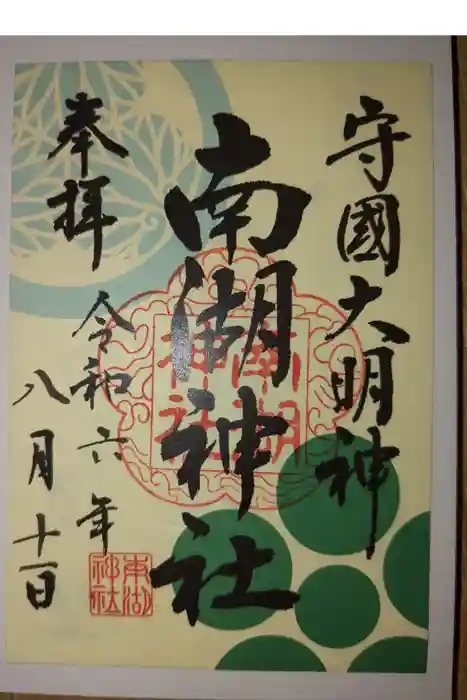 守國大明神
南湖神社
奉拝
令和六年
八月十一日
南湖神社
南湖神社